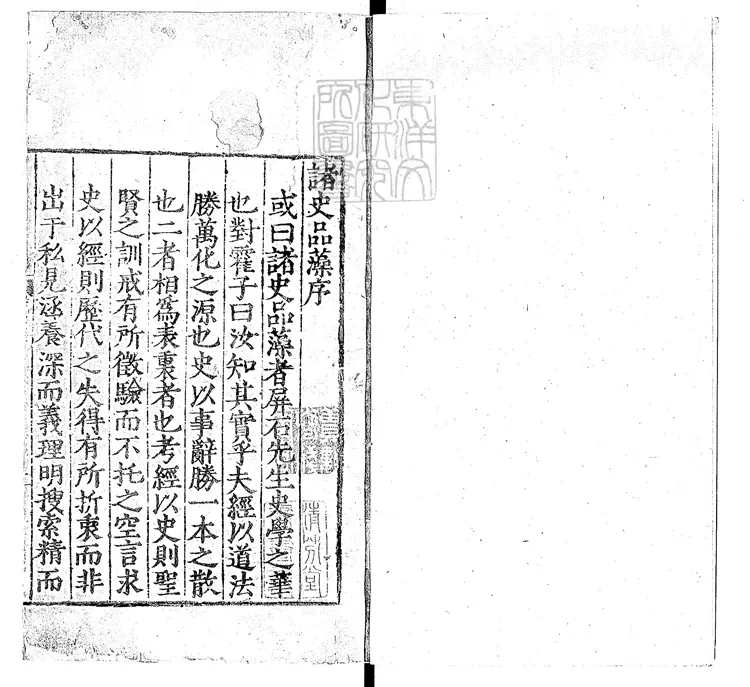 諸史品藻序
或曰諸史品藻者屏石先生史學之華
也對霍子曰汝知其實乎夫經以道法
勝萬化之源也史以事辭勝一本之散
也二者相為表裏者也考經以史則聖
賢之訓戒有所徵驗而不托之空言求
史以經則歷代之失得有所折衷而非
出于私見涵養深而義理明搜索精而
東洋文
化研究
所圖
清芬堂